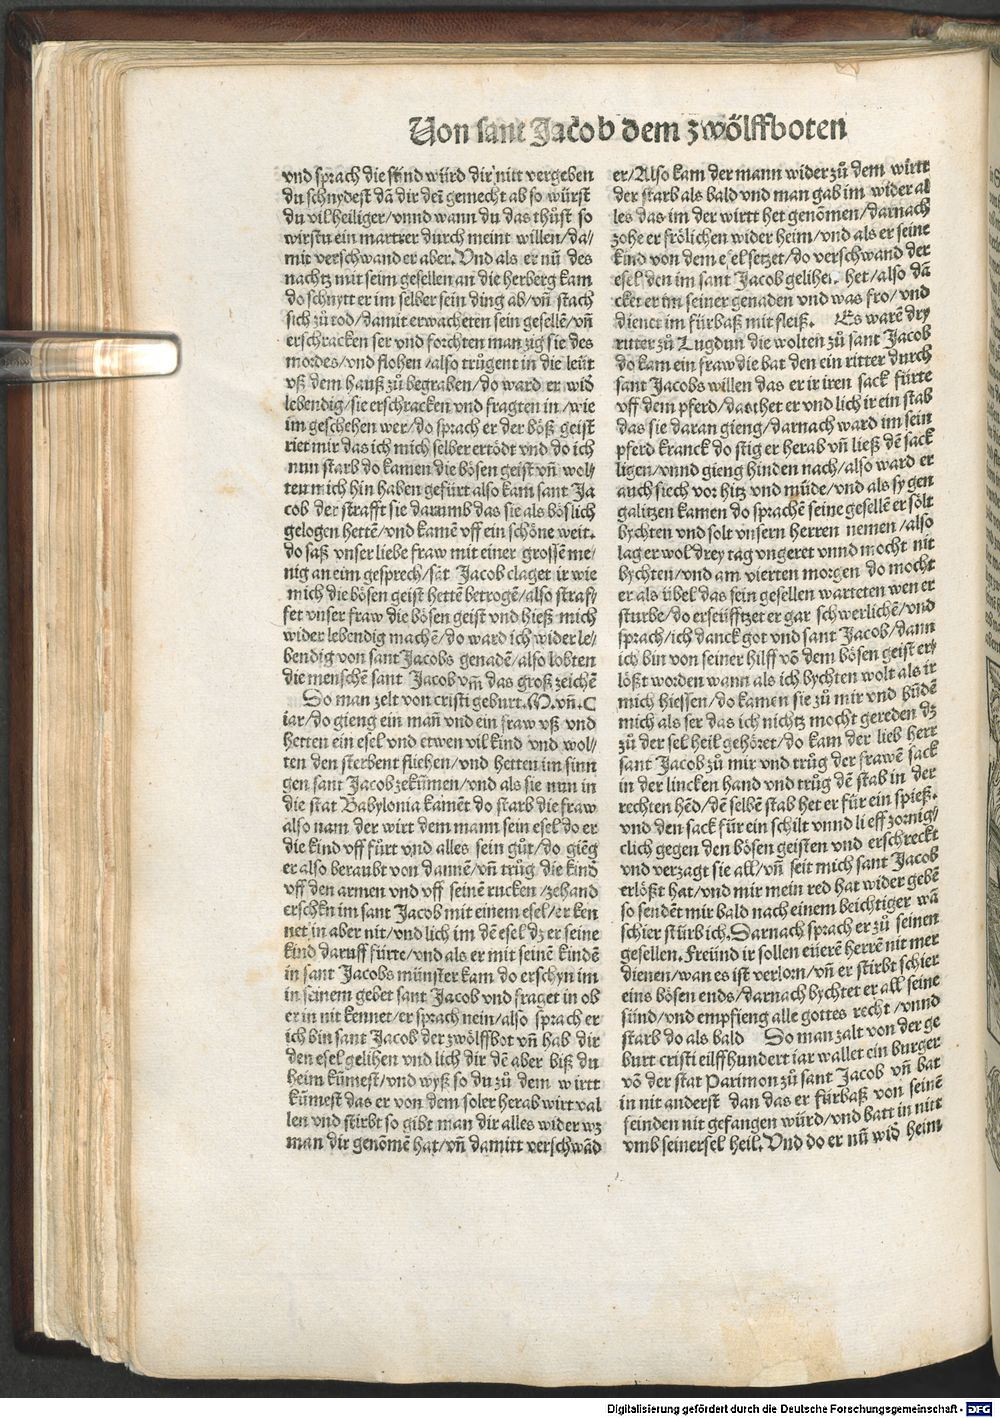 Von sant Jacob dem zwölffboten
vnd sprach die sünd würd dir nitt vergeben
du schnydest dā dir dei gemecht ab so würst
du vil heiliger/vnnd wann du das thüst so
wirstu ein martrer durch meint willen/da⸗
mit verschwand er aber. Vnd als er nū des
nachtz mit seim gesellen an die herberg kam
do schnytt er im selber sein ding ab/vn̄ stach
sich zů tod/damit erwacheten sein gesellē/vn̄
erschracken ser vnd forchten man zig sie des
mordes/vnd flohen/also trůgent in die leüt
vß dem hauß zů begraben/do ward er wid
lebendig/sie erschracken vnd fragten in/wie
im geschehen wer/do sprach er der böß geist
riet mir das ich mich selber ertödt vnd do ich
nun starb do kamen die bösen geist vn̄ wol⸗
ten mich hin haben gefürt also kam sant Ja
cob der strafft sie darumb das sie als böslich
gelogen hettē/vnd kamē vff ein schöne weit.
do saß vnser liebe fraw mit einer grossē me⸗
nig an eim gesprech/sāt Jacob claget ir wie
mich die bösen geist hettē betrogē/also straf⸗
fet vnser fraw die bösen geist vnd hieß mich
wider lebendig machē/do ward ich wider le⸗
bendig von sant Jacobs genadē/also lobten
die menschē sant Jacob vm̄ das groß zeichē
So man zelt von cristi geburt. M. vn̄. C
iar/do gieng ein man̄ vnd ein fraw vß vnd
hetten ein esel vnd etwen vil kind vnd wol⸗
ten den sterbent fliehen/vnd hetten im sinn
gen sant Jacob zekūmen/vnd als sie nun in
die stat Babylonia kamēt do starb die fraw
also nam der wirt dem mann sein esel do er
die kind vff fůrt vnd alles sein gůt/do giēg
er also beraubt von dannē/vn̄ trůg die kind
vff den armen vnd vff seinē rucken/zehand
erschēn im sant Jacob mit einem esel/er ken
net in aber nit/vnd lich im dē esel dz er seine
kind daruff fürte/vnd als er mit seinē kindē
in sant Jacobs münster kam do erschyn im
in seinem gebet sant Jacob vnd fraget in ob
er in nit kennet/er sprach nein/also sprach er
ich bin sant Jacob der zwölffbot vn̄ hab dir
den esel gelihen vnd lich dir dē aber biß du
heim kūmest/vnd wyß so du zů dem wirtt
kūmest das er von dem soler herab wirt val
len vnd stirbt so gibt man dir alles wider wz
man dir genōmē hat/vn̄ damitt verschwād
er/Also kam der mann wider zů dem wirtt
der starb als bald vnd man gab im wider al
les das im der wirtt het genōmen/darnach
zohe er frölichen wider heim/vnd als er seine
kind von dem esel setzet/do verschwand der
esel den im sant Jacob gelihen het/also dā
cket er im seiner genaden vnd was fro/vnd
dienet im fürbaß mit fleiß. Es warē dry
ritter zů Lugdun die wolten zů sant Jacob
do kam ein fraw die bat den ein ritter durch
sant Jacobs willen das er ir iren sack fürte
vff dem pferd/das thet er vnd lich ir ein stab
das sie daran gieng/darnach ward im sein
pferd kranck do stig er herab vn̄ ließ dē sack
ligen/vnnd gieng hinden nach/also ward er
auch siech vor hitz vnd müde/vnd als sy gen
galitzen kamen do sprachē seine gesellē er sölt
bychten vnd solt vnsern herren nemen/also
lag er wol drey tag vngeret vnnd mocht nit
bychten/vnd am vierten morgen do mocht
er als übel das sein gesellen warteten wen er
sturbe/do erseüfftzet er gar schwerlichē/vnd
sprach/ich danck got vnd sant Jacob/dann
ich bin von seiner hilff vō dem bösen geist er⸗
lößt worden wann als ich bychten wolt als ir
mich hiessen/do kamen sie zů mir vnd būdē
mich als ser das ich nichtz mocht gereden dz
zů der sel heil gehöret/do kam der lieb herr
sant Jacob zů mir vnd trůg der frawē sack
in der lincken hand vnd trůg dē stab in der
rechten hēd/dē selbē stab het er für ein spieß.
vnd den sack für ein schilt vnnd lieff zornig⸗
clich gegen den bösen geisten vnd erschreckt
vnd verzagt sie all/vn̄ seit mich sant Jacob
erlößt hat/vnd mir mein red hat wider gebē
so sendēt mir bald nach einem beichtiger wā
schier stürb ich. Darnach sprach er zů seinen
gesellen. Freünd ir sollen eüerē herrē nit mer
dienen/wan es ist verlorn/vn̄ er stirbt schier
eins bösen ends/darnach bychtet er all seine
sünd/vnd empfieng alle gottes recht/vnnd
starb do als bald So man zalt von der ge
burt cristi eilffhundert iar wallet ein burger
vō der stat Parimon zů sant Jacob vn̄ bat
in nit anderst dan das er fürbaß von seinē
feinden nit gefangen würd/vnd batt in nitt
vmb seiner sel heil. Vnd do er nū wid heim
Digitalisierung gefördert durch die Deutsche Forschungsgemeinschaft - DFG